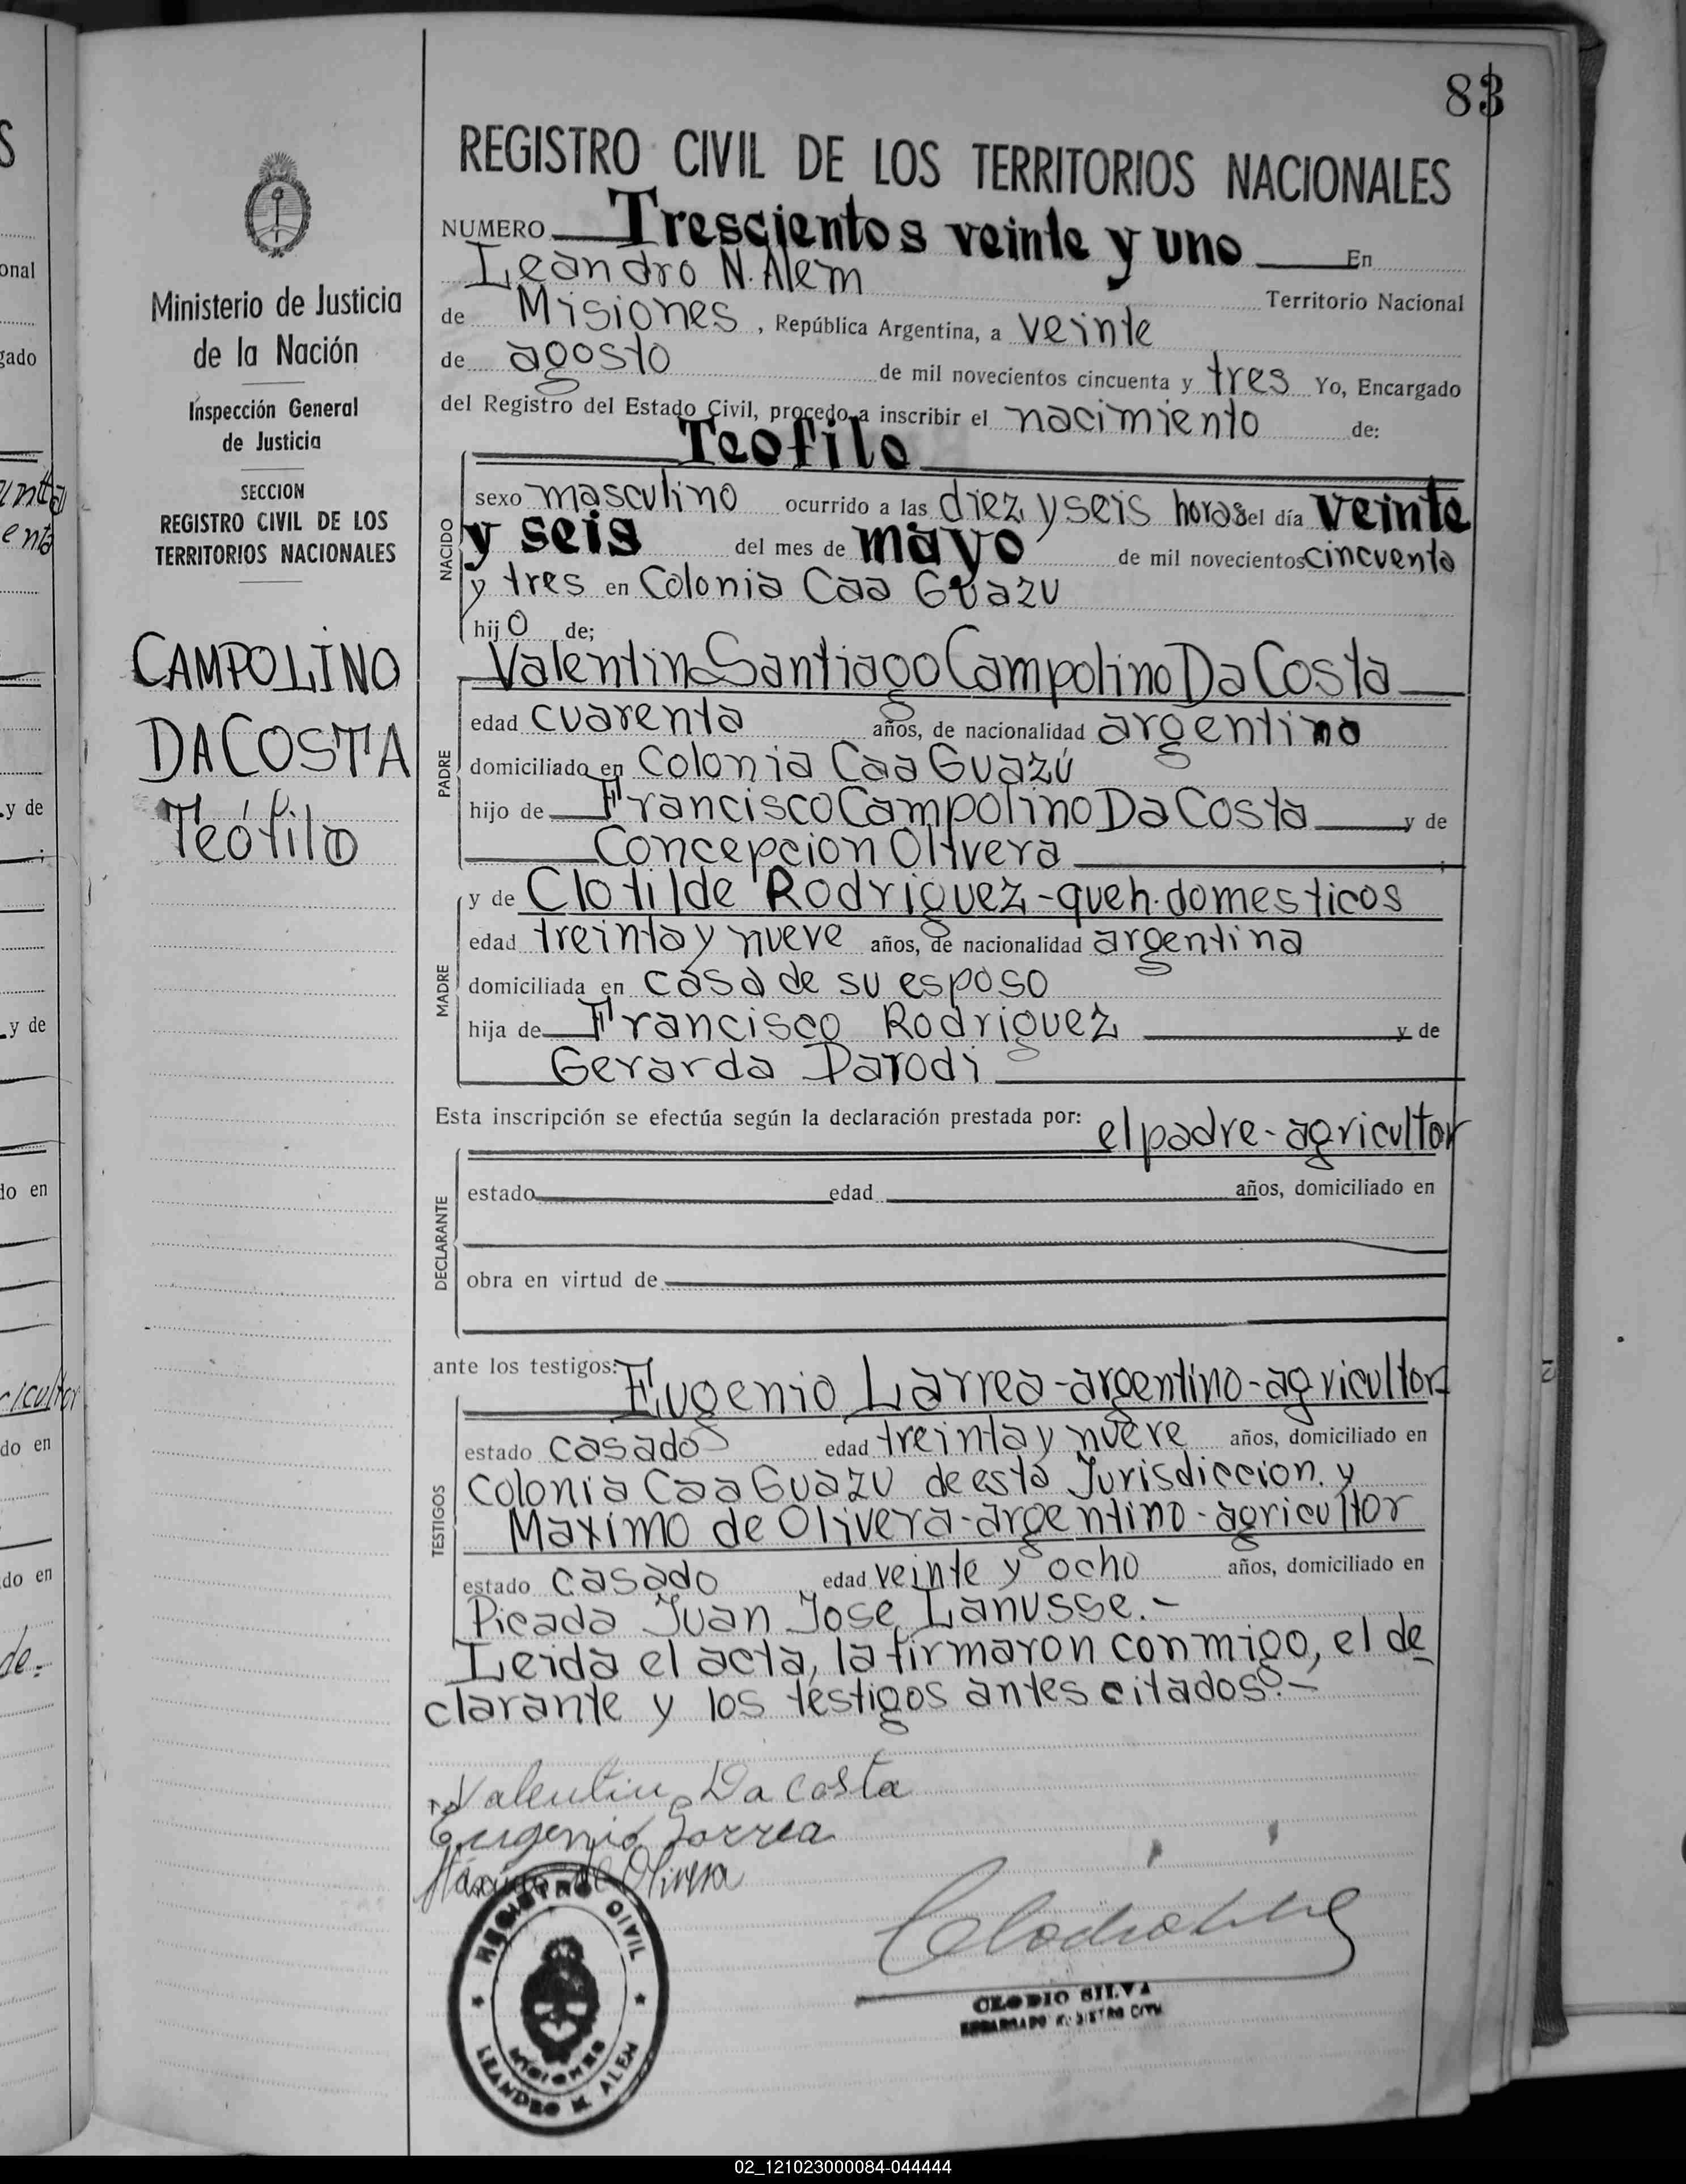 83
REGISTRO CIVIL DE LOS TERRITORIOS NACIONALES
NUMERO Trescientos veinte y uno En
Leandro N. Alem Territorio Nacional
de Misiones, República Argentina, a veinte
de agosto de mil novecientos cincuenta y tres Yo, Encargado
del Registro del Estado Civil, procedo a inscribir el nacimiento de:
Teofilo
NACIDO
sexo masculino ocurrido a las diez y seis horas del día veinte
y seis del mes de mayo de mil novecientos cincuenta
y tres en Colonia Caa Guazu
hijo de;
Valentin Santiago Campolino Da Costa
PADRE
edad cuarenta años, de nacionalidad argentino
domiciliado en Colonia Caa Guazú
hijo de Francisco Campolino Da Costa y de
Concepcion Olivera
MADRE
y de Clotilde Rodriguez-queh. domesticos
edad treinta y nueve años, de nacionalidad argentina
domiciliada en casa de su esposo
hija de Francisco Rodriguez y de
Gerarda Parodi
Esta inscripción se efectúa según la declaración prestada por: el padre-agricultor
DECLARANTE
estado edad años, domiciliado en
obra en virtud de
ante los testigos: Eugenio Larrea-argentino-agricultor-
TESTIGOS
estado casado edad treinta y nueve años, domiciliado en
Colonia Caa Guazu de esta Jurisdiccion. y
Maximo de Olivera-argentino-agricultor
estado casado edad veinte y ocho años, domiciliado en
Picada Juan Jose Lanusse.-
Leida el acta, la firmaron conmigo, el de
clarante y los testigos antes citados.-
Valentin Da Costa
Eugenio Larrea
Máximo de Olivera
REGISTRO CIVIL
MISIONES
LEANDRO N. ALEM
CLODIO SILVA
ENCARGADO REGISTRO CIVIL
Ministerio de Justicia
de la Nación
Inspección General
de Justicia
SECCION
REGISTRO CIVIL DE LOS
TERRITORIOS NACIONALES
CAMPOLINO
DA COSTA
Teófilo
onal
gado
y de
y de
do en
icultor
do en
do en
de-
02_121023000084-044444